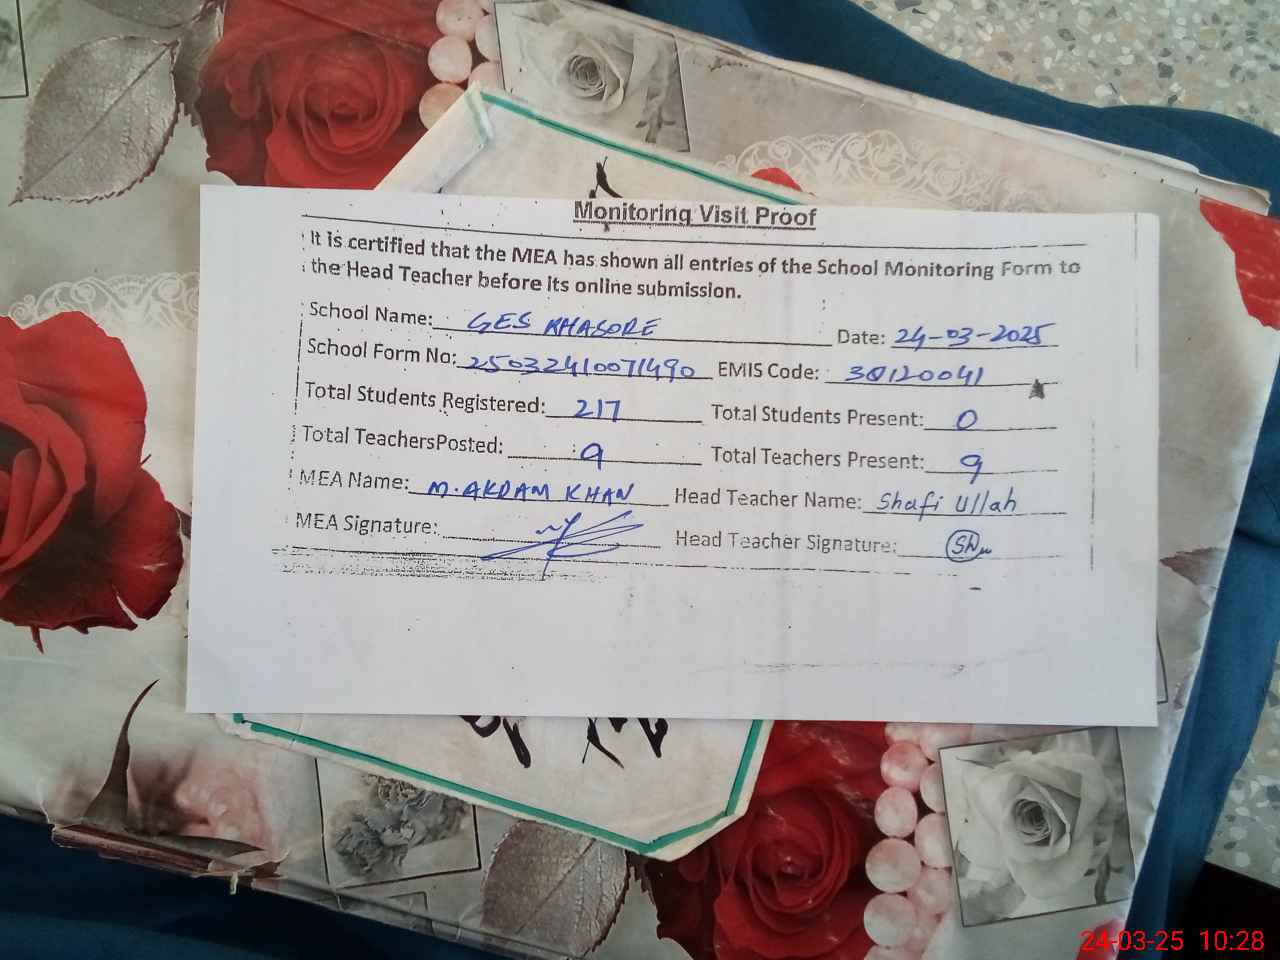 Monitoring Visit Proof
It is certified that the MEA has shown all entries of the School Monitoring Form to
the Head Teacher before its online submission.
School Name: GES KHASORE Date: 24-03-2025
School Form No: 25032410071490 EMIS Code: 30120041
Total Students Registered: 217 Total Students Present: 0
Total TeachersPosted: 9 Total Teachers Present: 9
MEA Name: M. AKRAM KHAN Head Teacher Name: Shafi Ullah
MEA Signature: Head Teacher Signature:
24-03-25 10:28